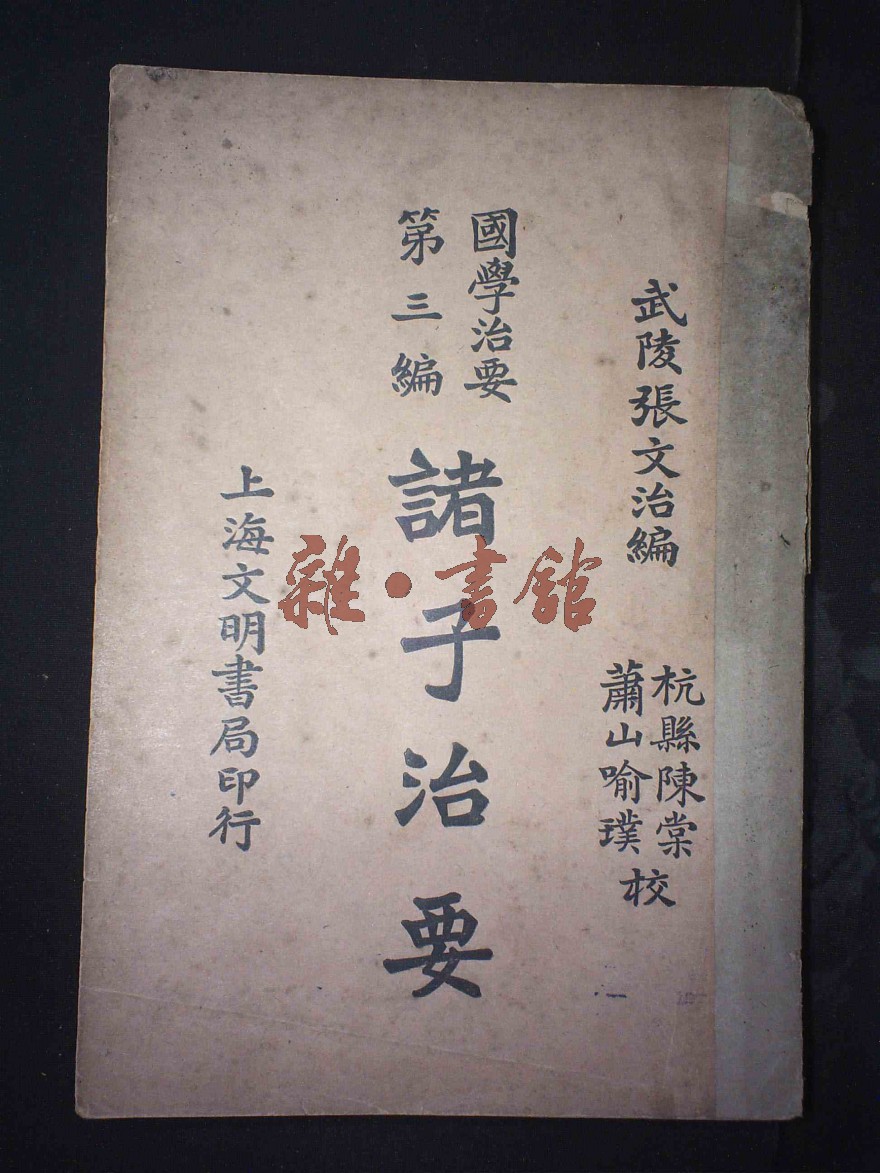 武陵張文治編
杭縣陳棠
蕭山喻璞
校
國學治要
第三編
諸子治要
上海文明書局印行
雜·書館